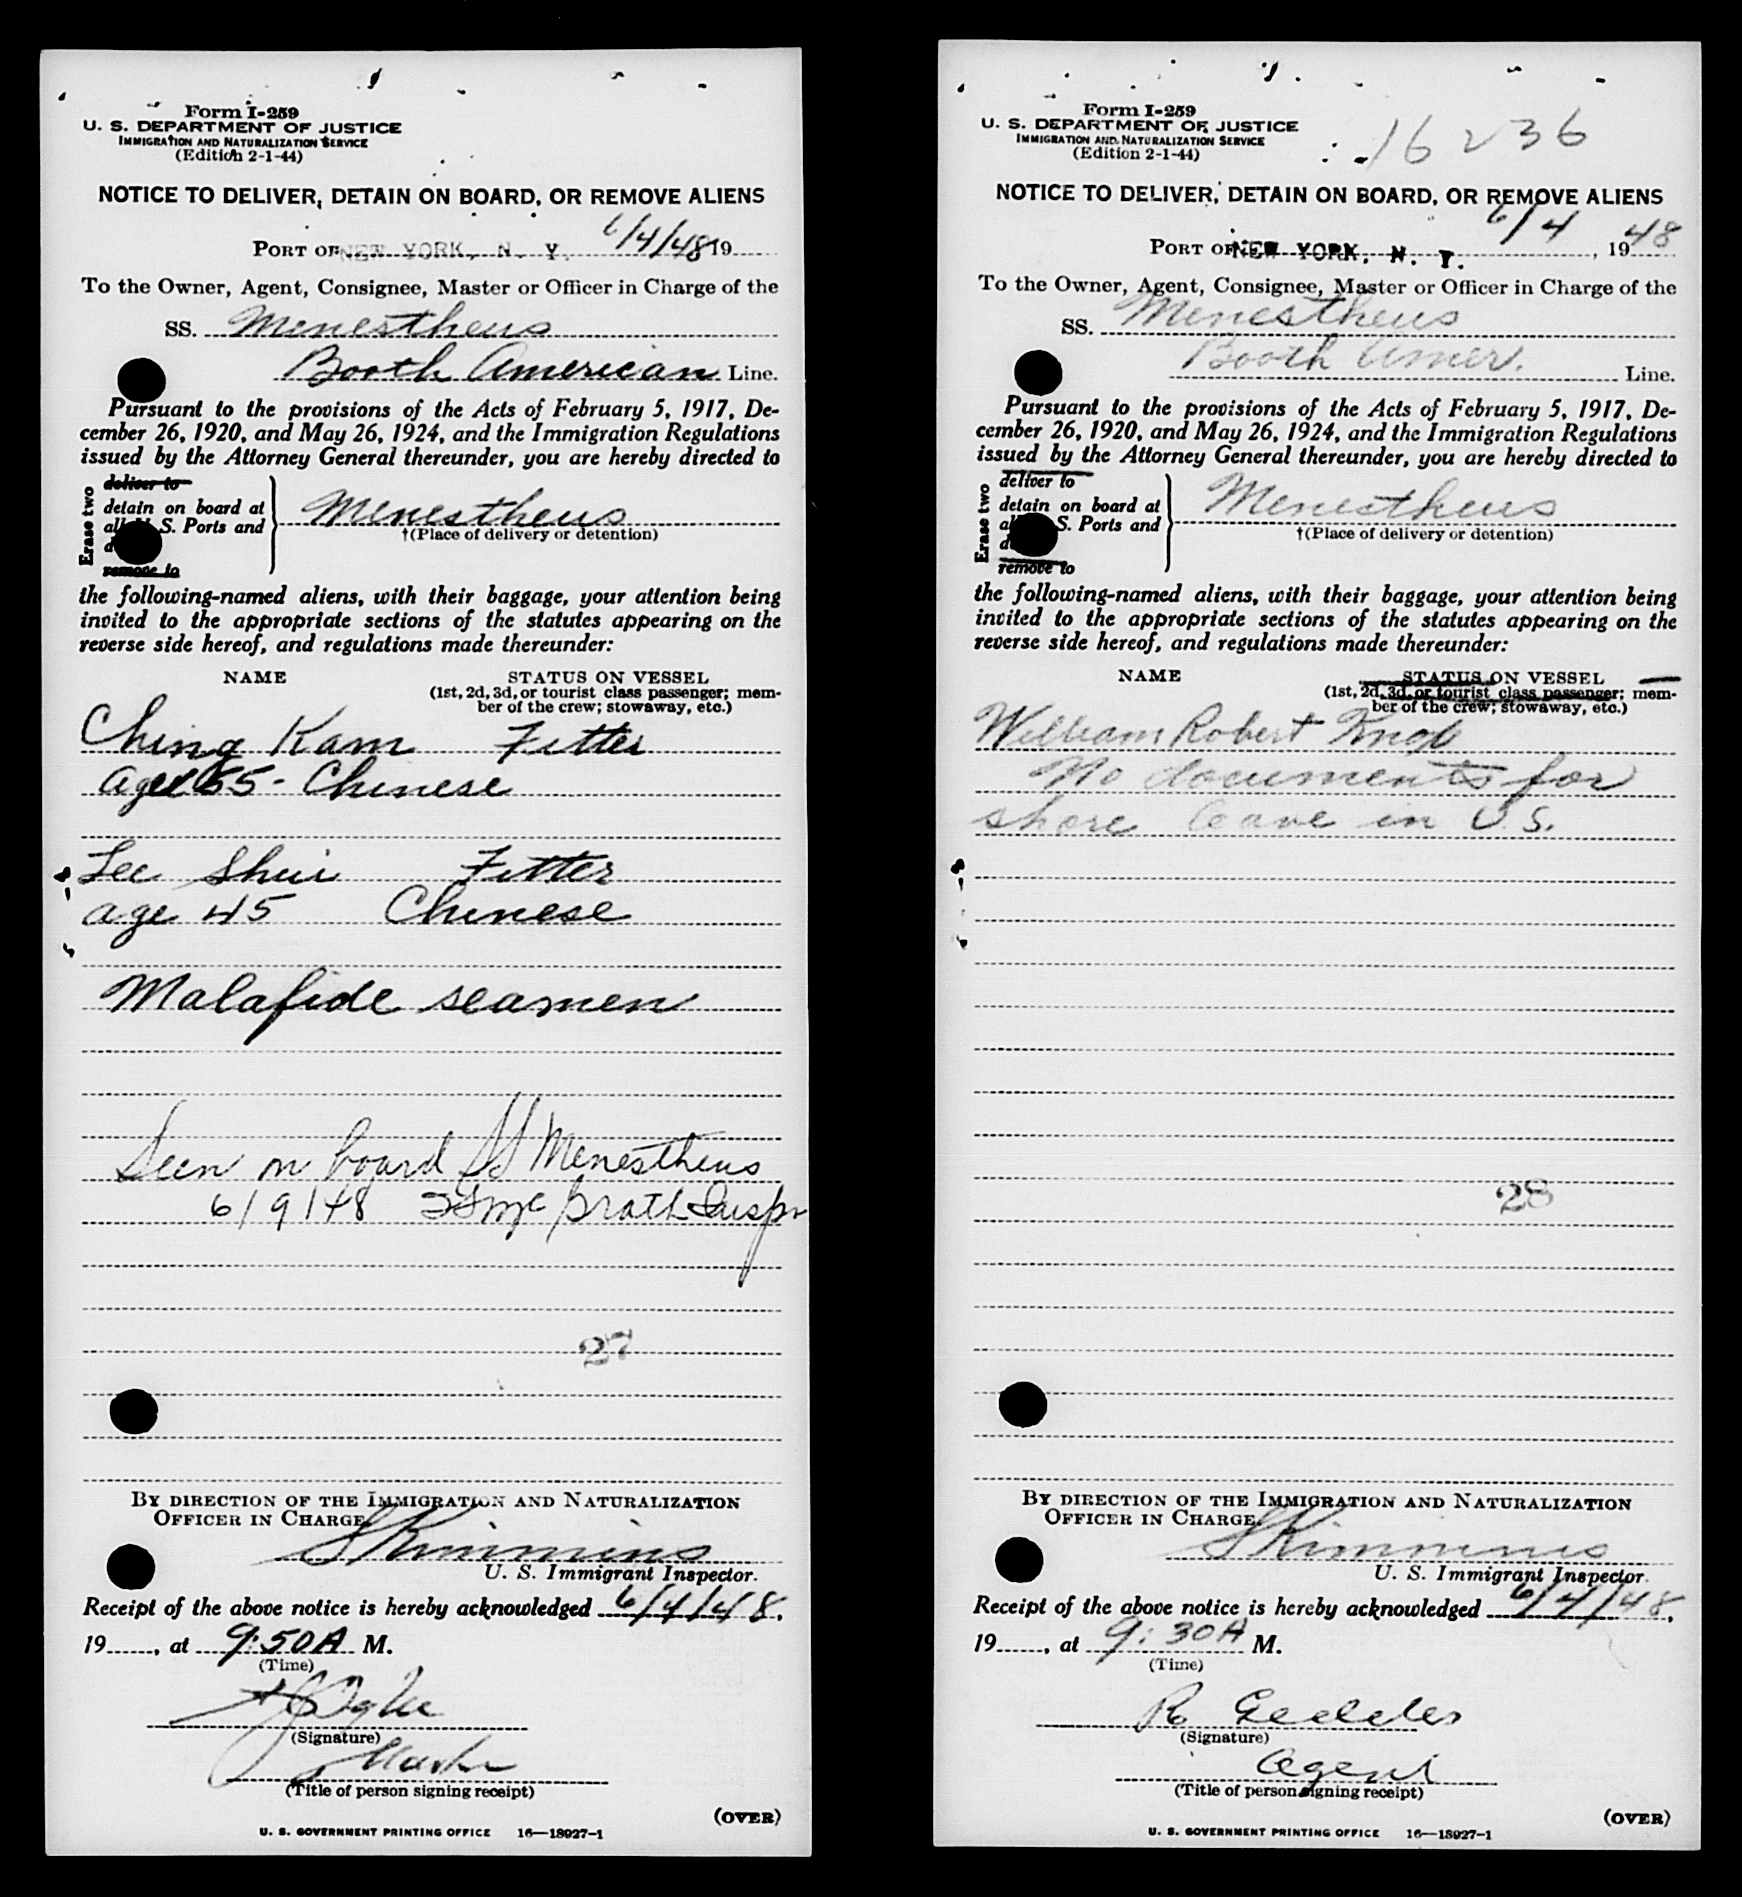 Form I-259
U. S. DEPARTMENT OF JUSTICE
IMMIGRATION AND NATURALIZATION SERVICE
(Edition 2-1-44)
NOTICE TO DELIVER, DETAIN ON BOARD, OR REMOVE ALIENS
PORT OF NEW YORK, N. Y. 6/4/48 19
To the Owner, Agent, Consignee, Master or Officer in Charge of the
SS. Menestheus
Booth American Line.
Pursuant to the provisions of the Acts of February 5, 1917, De-
cember 26, 1920, and May 26, 1924, and the Immigration Regulations
issued by the Attorney General thereunder, you are hereby directed to
Erase two
deliver to
detain on board at
all S. Ports and
remove to
Menestheus
†(Place of delivery or detention)
the following-named aliens, with their baggage, your attention being
invited to the appropriate sections of the statutes appearing on the
reverse side hereof, and regulations made thereunder:
NAME STATUS ON VESSEL
(1st, 2d, 3d, or tourist class passenger; mem-
ber of the crew; stowaway, etc.)
Ching Kam Fitter
aged 55 - Chinese
Lee Shui Fitter
age 45 Chinese
Malafide seamen
Seen on board SS Menestheus
6/9/48 McGrath Inspr
27
BY DIRECTION OF THE IMMIGRATION AND NATURALIZATION
OFFICER IN CHARGE.
S Kimmins
U. S. Immigrant Inspector.
Receipt of the above notice is hereby acknowledged 6/4/48,
19, at 9:50 A M.
(Time)
(Signature)
Master
(Title of person signing receipt)
(OVER)
U. S. GOVERNMENT PRINTING OFFICE 16—18927-1
Form I-259
16236
U. S. DEPARTMENT OF JUSTICE
IMMIGRATION AND NATURALIZATION SERVICE
(Edition 2-1-44)
NOTICE TO DELIVER, DETAIN ON BOARD, OR REMOVE ALIENS
PORT OF NEW YORK, N. Y. 6/4, 1948
To the Owner, Agent, Consignee, Master or Officer in Charge of the
SS. Menestheus
Booth Amer. Line.
Pursuant to the provisions of the Acts of February 5, 1917, De-
cember 26, 1920, and May 26, 1924, and the Immigration Regulations
issued by the Attorney General thereunder, you are hereby directed to
Erase two
deliver to
detain on board at
S. Ports and
remove to
Menestheus
†(Place of delivery or detention)
the following-named aliens, with their baggage, your attention being
invited to the appropriate sections of the statutes appearing on the
reverse side hereof, and regulations made thereunder:
NAME STATUS ON VESSEL
(1st, 2d, 3d, or tourist class passenger; mem-
ber of the crew; stowaway, etc.)
William Robert
No documents for
shore leave in U.S.
28
BY DIRECTION OF THE IMMIGRATION AND NATURALIZATION
OFFICER IN CHARGE.
S Kimmins
U. S. Immigrant Inspector.
Receipt of the above notice is hereby acknowledged 6/4/48,
19, at 9:30 A M.
(Time)
R Geddes
(Signature)
Agent
(Title of person signing receipt)
(OVER)
U. S. GOVERNMENT PRINTING OFFICE 16—18927-1